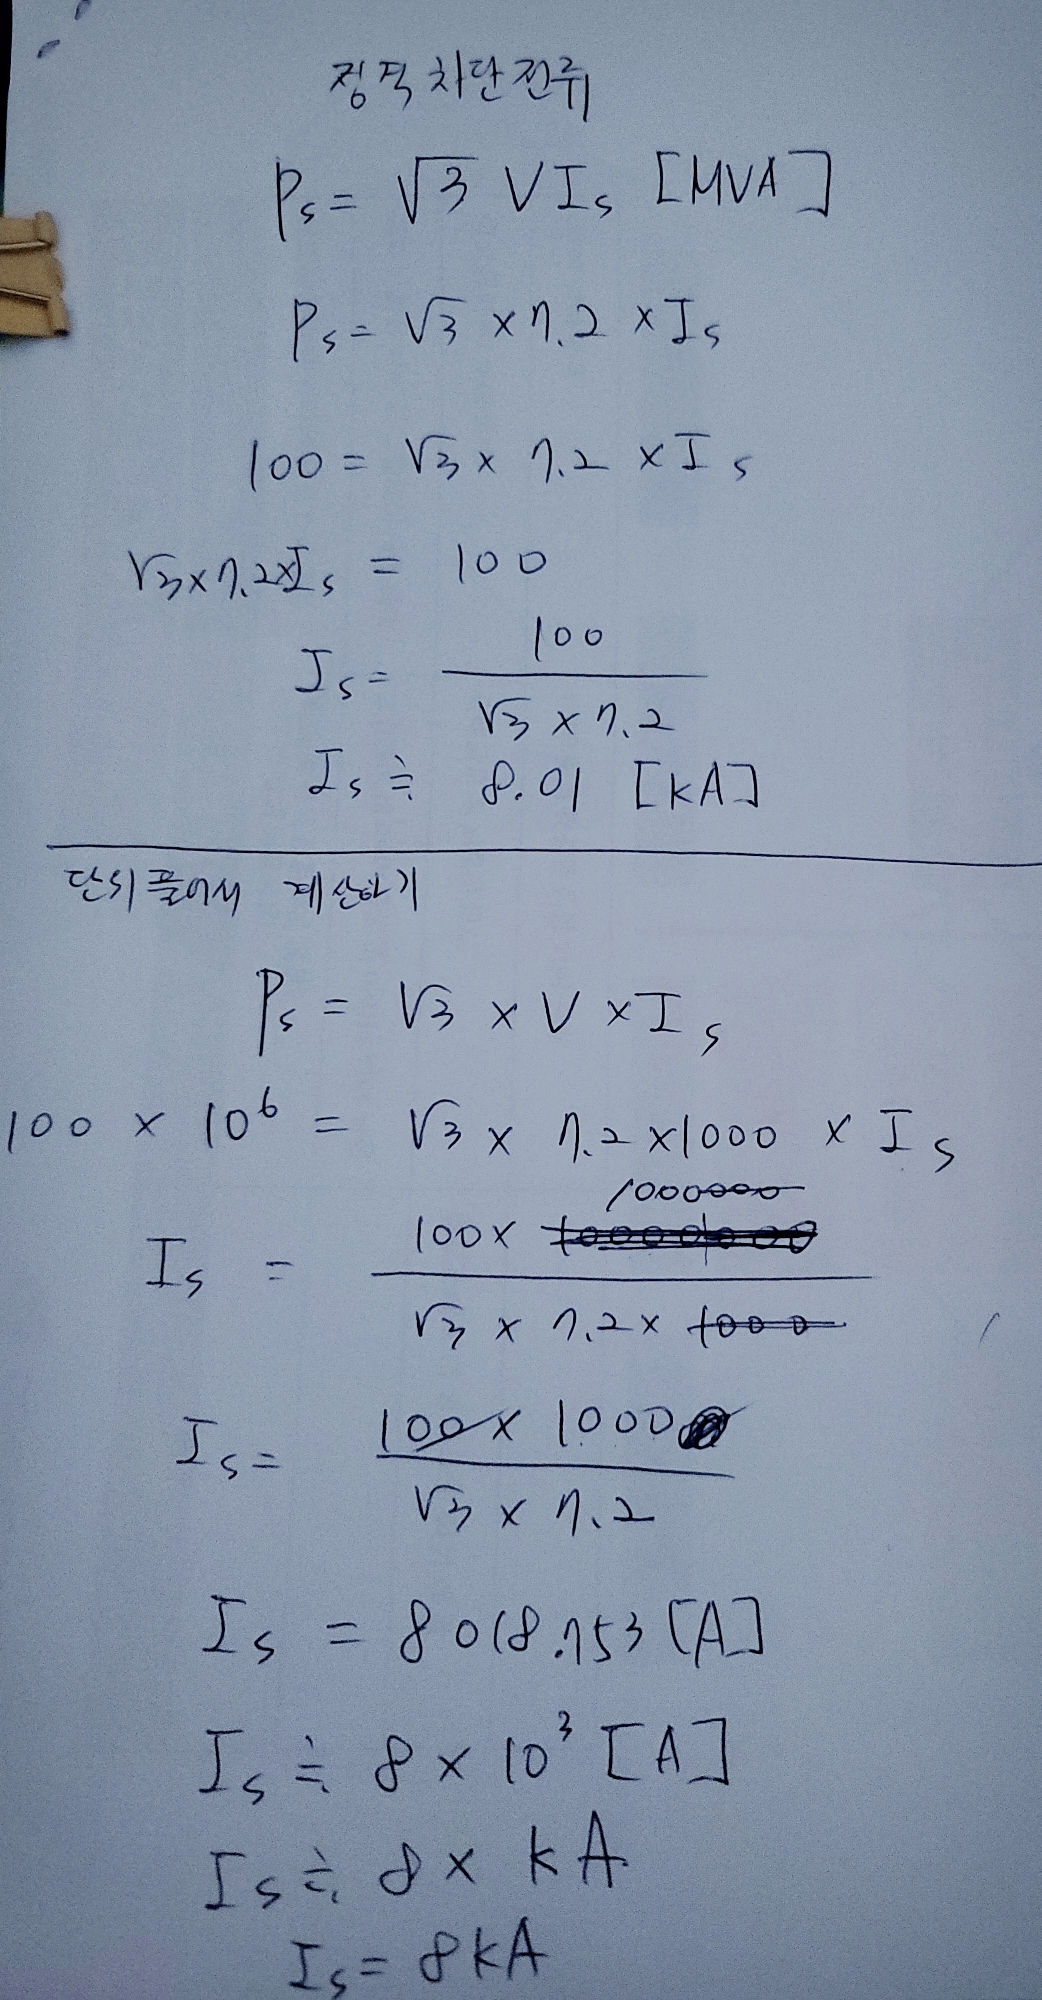 정격차단전류
Ps = √3 VIs [MVA]
Ps = √3 × 7.2 × Is
100 = √3 × 7.2 × Is
√3×7.2×Is = 100
Is = 100
√3 × 7.2
Is ≒ 8.01 [kA]
단위 풀어서 계산하기
Ps = √3 × V × Is
100 × 10⁶ = √3 × 7.2 × 1000 × Is
1000000
Is = 100×
√3 × 7.2 × 1000
Is = 100 × 1000
√3 × 7.2
Is = 8018.753 [A]
Is ≒ 8 × 10³ [A]
Is ≒ 8 × kA
Is = 8kA